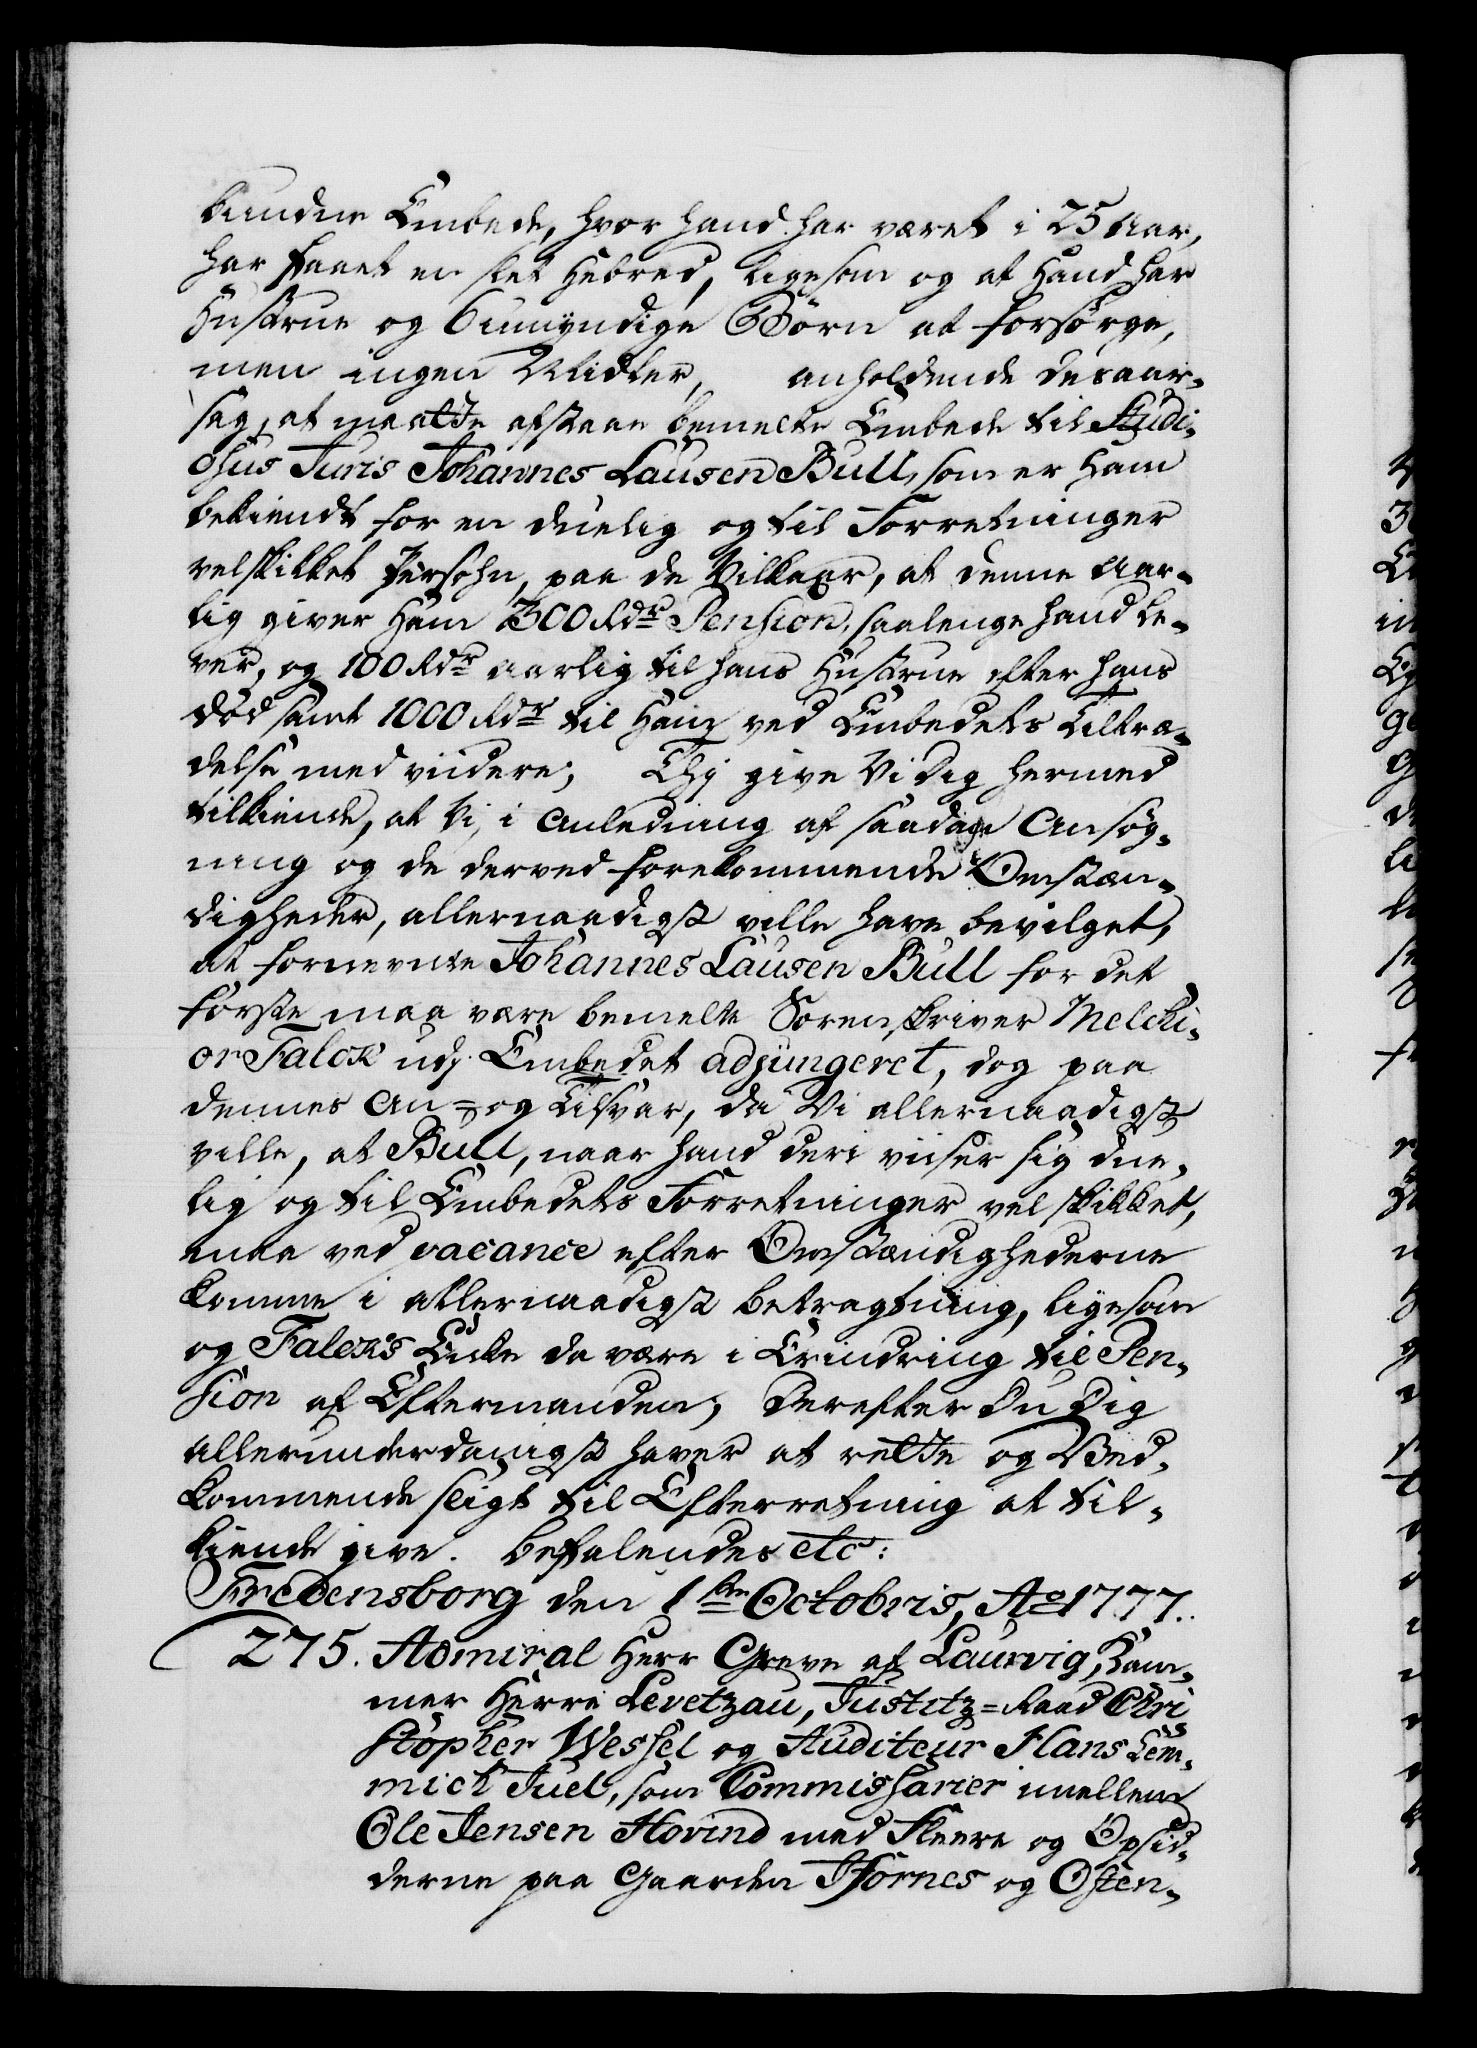 bundne Embede, hvor hand har været i 25 Aar,
har faaet en slet Helbred, ligesom og at Hand har
Hustrue og 6 umyndige Börn at forsörge,
men ingen Midler, anholdende desaar-
sag, at maatte afstaae bemelte Embede til Studi-
osus Juris Johannes Lausen Bull, som er Ham
bekiendt for en duelig og til Forretninger
velskikket Persohn, paa de Vilkaar, at denne aar-
lig giver Ham 300 Rdr Pension, saalenge hand le-
ver, og 100 Rdr aarlig til hans Hustrue efter hans
Död samt 1000 Rdr til Ham ved Embedets Tiltræ-
delse med viidere; Thj give Vi dig hermed
tilkiende, at Vi, i Anledning af saadan Ansög-
ning og de derved forekommende Omstæn-
digheder, allernaadigst ville have bevilget,
at fornevnte Johannes Lausen Bull for det
förste maa være bemelte Sorenskriver Melchi-
or Falck udj Embedet adjungeret, dog paa
dennes An- og Tilsvar, da Vi allernaadigst
ville, at Bull, naar hand deri viiser sig due-
lig og til Embedets Forretninger vel skikket,
maa ved vacance efter Omstændighederne
komme i allernaadigst betragtning, ligesom
og Falcks Enke da være i Erindring til Pen-
sion af Eftermanden; Derefter Du Dig
allerunderdanigst haver at rette og Ved-
kommende sligt til Efterretning at til-
kiende give. Befalendes etc:
Fredensborg den 1ste Octobris, Ao 1777.
275. Admiral Herr Greve af Laurvig, Kam-
mer Herre Levetzau, Justitz-Raad Chri
stopher Wessel og Auditeur Hans Lem-
mich Juel, som Commissarier imellem
Ole Jensen Hovind med Fleere og Opsid-
derne paa Gaarden Tiörnes og Osten-